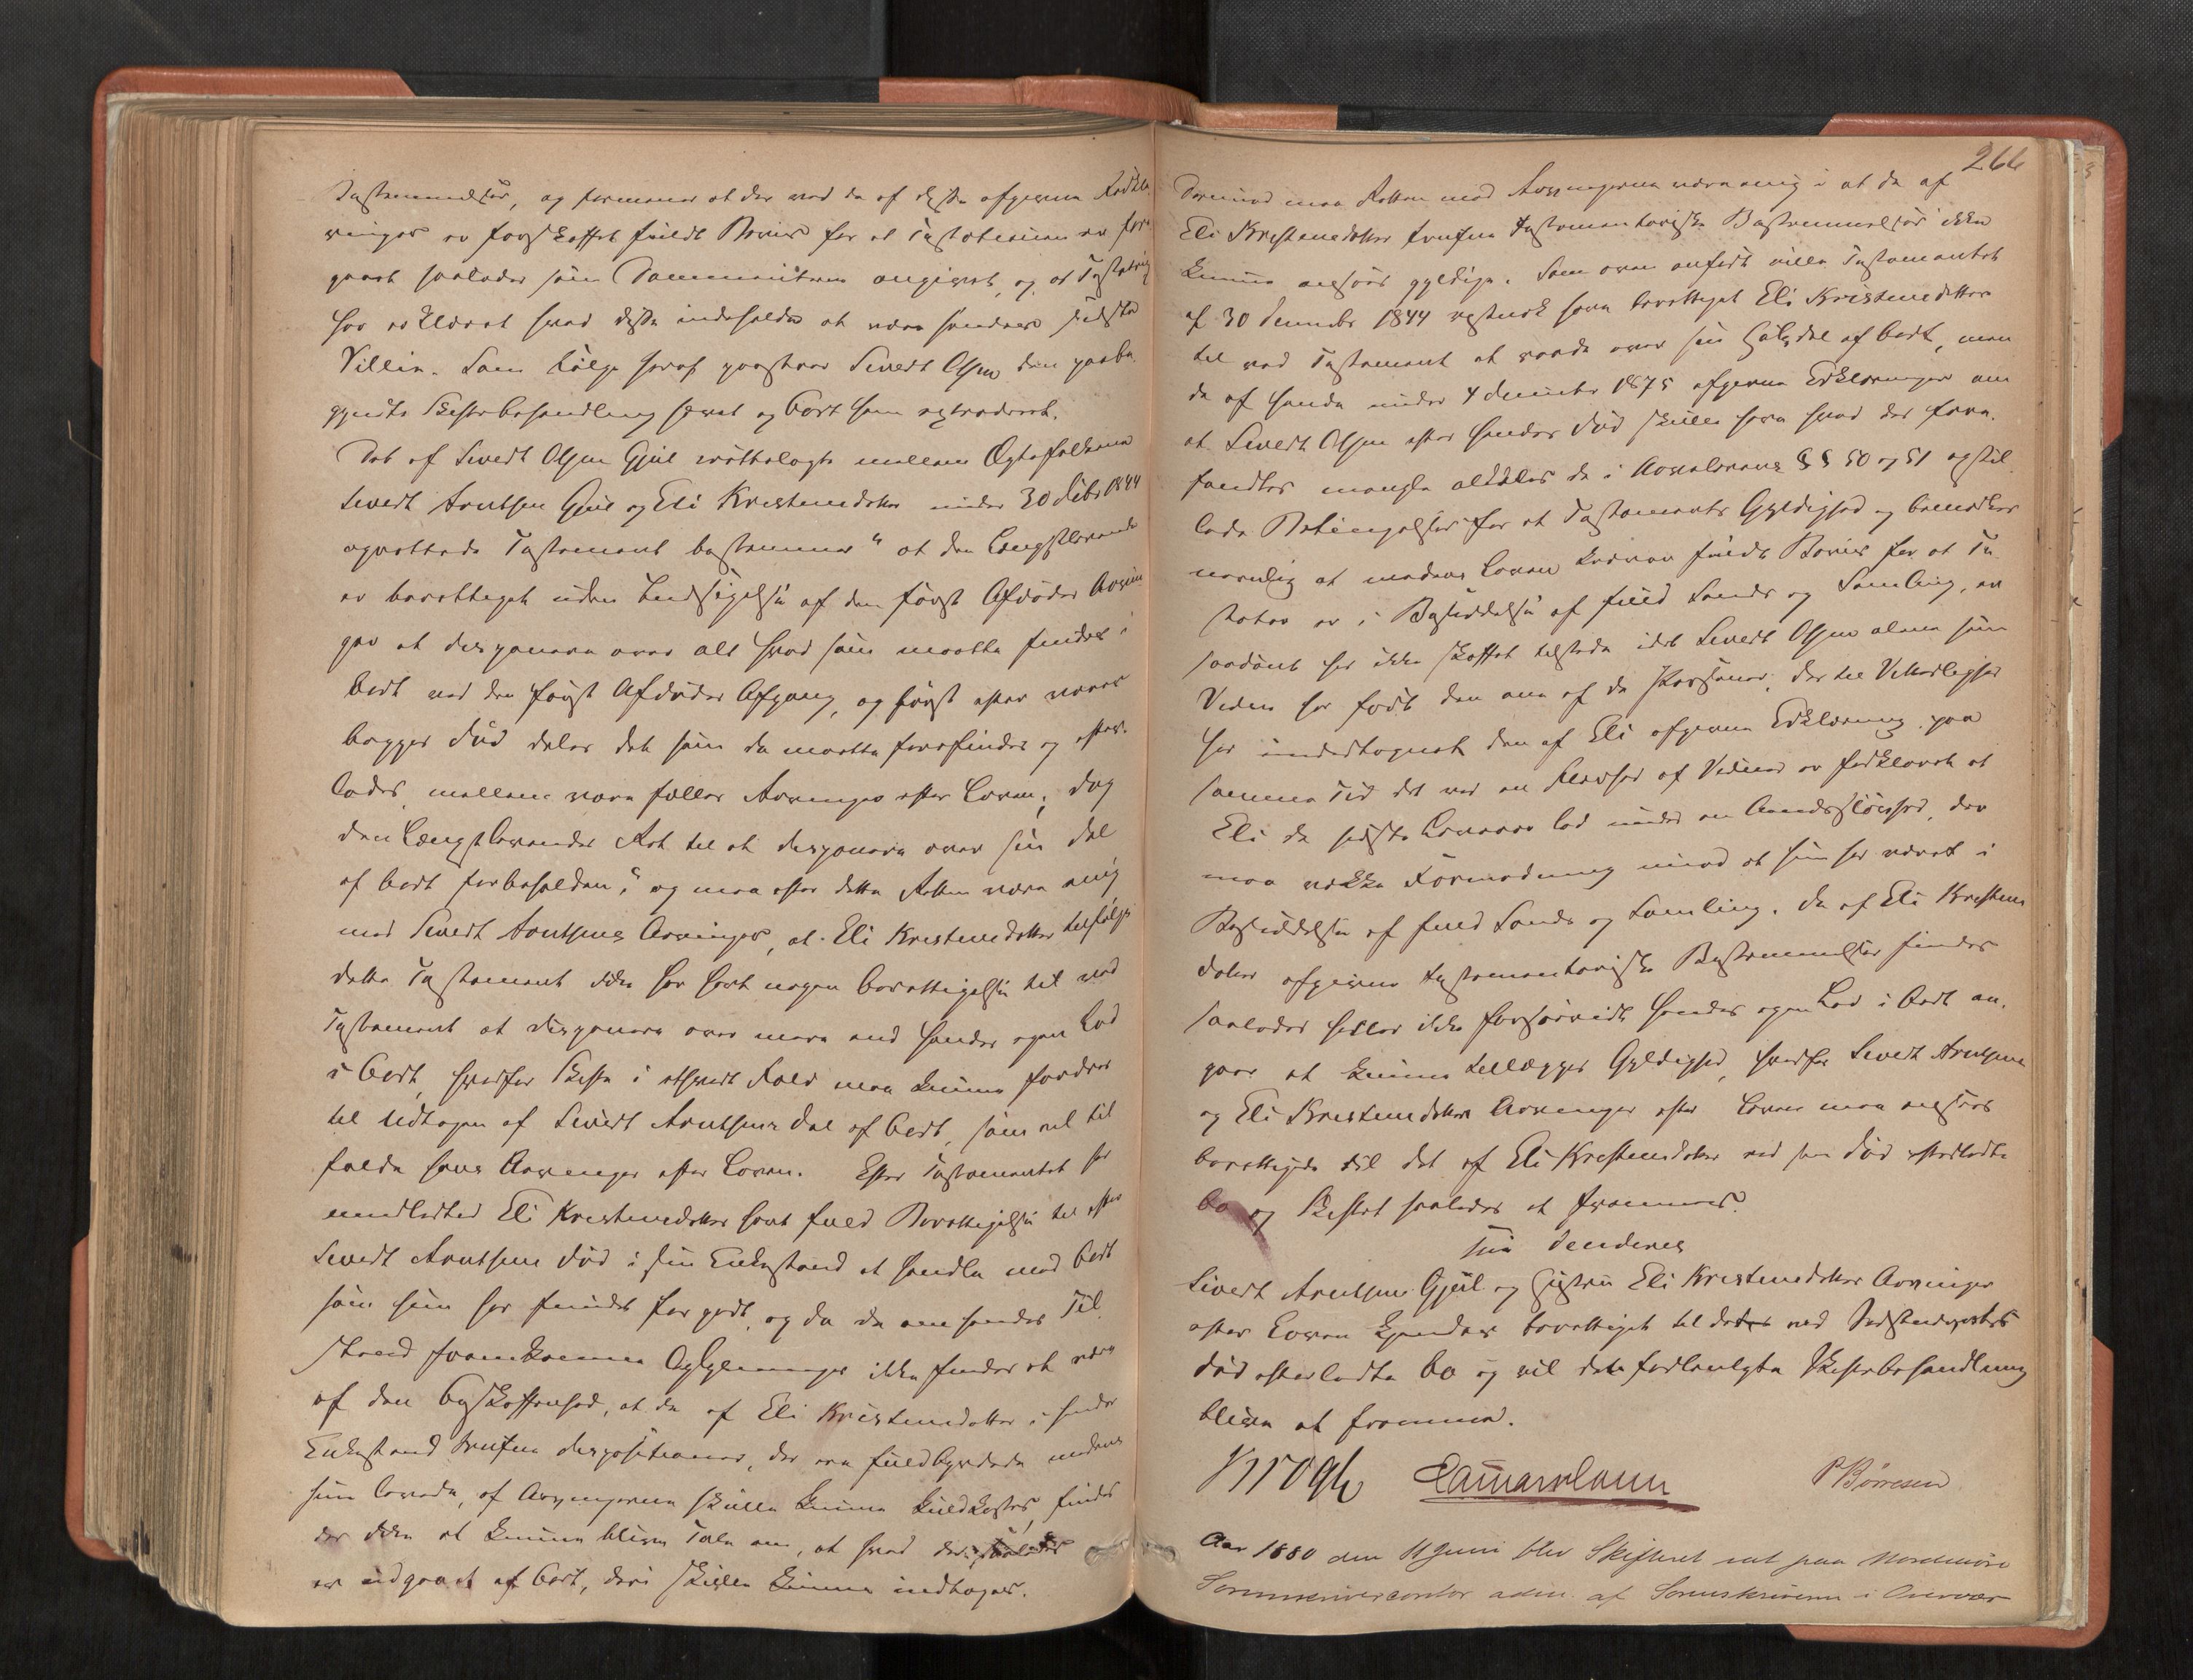 Bestemmelser, og formener at der ved de af disse afgivne Forkla-
ringer er forskaffet fuldt Beviis for at Testationen er fore-
gaaet saaledes som Documenterne angivet, og at Testatrix
har erklæret hvad disse indeholde at være hendes sidste
Villie. Som Følge heraf paastaar Sivert Olsen den paabe-
gyndte Skiftebehandling hævet og Boet ham extraderet.
Det af Sivert Olsen Gjul irettelagte mellem Ægtefolkene
Sivert Arntsen Gjul og Eli Kristensdatter under 30 Decbr 1844
oprettede Testament bestemmer "at den Længstlevende
er berettiget uden Indsigelse af den først Afdødes Arvin-
ger at disponere over alt hvad som maatte findes i
Boet ved den først Afdødes Afgang, og først efter vores
begges Død deles det som da maatte forefindes og efter-
lades, mellem vore fælles Arvinger efter Loven, dog
den Længstlevendes Ret til at disponere over sin Del
af Boet forbeholden," og maa efter dette Retten være enig
med Sivert Arntsens Arvinger, at Eli Kristensdatter ifølge
dette Testament ikke har havt nogen Berettigelse til ved
Testament at disponere over mere end hendes egen Lod
i Boet, hvorfor Skifte i ethvert Fald maa kunne fordres
til Udtagen af Sivert Arntsens Del af Boet, som vil til-
falde hans Arvinger efter Loven. Efter Testamentet har
imidlertid Eli Kristensdatter havt fuld Berettigelse til efter
Sivert Arntsens Død i sin Enkestand at handle med Boet
som hun har fundet for godt, og da de om hendes Til-
stand fremkomne Oplysninger ikke findes at være
af den Beskaffenhed, at de af Eli Kristensdatter i hendes
Enkestand trufne Dispositioner, der ere fuldbyrdede medens
hun levede, af Arvingerne skulle kunne kuldkastes, findes
der ikke at kunne blive Tale om, at hvad der saaledes
er udgaaet af Boet, deri skulle kunne indtages.
266
Derimod maa Retten med Arvingerne være enig i at de af
Eli Kristensdatter trufne testamentariske Bestemmelser ikke
kunne ansees gyldige. Som oven anført ville Testamentet
af 30 December 1844 vistnok have berettiget Eli Kristensdatter
til ved Testament at raade over sin Halvdel af Boet, men
de af hende under 4 December 1875 afgivne Erklæringer om
at Sivert Olsen efter hendes Død skulle have hvad der fore-
fandtes mangle aldeles de i Arvelovens §§ 50 og 51 opstil-
lede Betingelser for et Testaments Gyldighed og bemærkes
navnlig at medens Loven kræver fuldt Beviis for at Te-
stator er i Besiddelse af fuld Sands og Samling, er
saadant her ikke skaffet tilstede idet Sivert Olsen alene som
Vidne har ført den ene af de Personer, der til Vitterlighed
har undertegnet den af Eli afgivne Erklæring paa
samme Tid det ved en Fleerhed af Vidner er forklaret at
Eli de sidste Leveaar led under en Aandssløvhed, der
maa vække Formodning imod at hun har været i
Besiddelse af fuld Sands og Samling. De af Eli Kristens-
datter afgivne testamentariske Bestemmelser findes
saaledes heller ikke forsaavidt hendes egen Lod i Boet an-
gaar at kunne tillægges Gyldighed, hvorfor Sivert Arntsens
og Eli Kristensdatters Arvinger efter Loven maa ansees
berettigede til det af Eli Kristensdatter ved sin Død efterladte
Bo og Skiftet saaledes at fremmes.
Thi Kjendes
Sivert Arntsen Gjul og Hustru Eli Kristensdatters Arvinger
efter Loven kjendes berettiget til det ved Sidstnævntes
Død efterladte Bo og vil den forlangte Skiftebehandling
blive at fremme.
Krogh
P Børresen
Aar 1880 den 11 Juni blev Skifteret sat paa Nordmøre
Sorenskrivercontor adm. af Sorenskriveren i Overvær